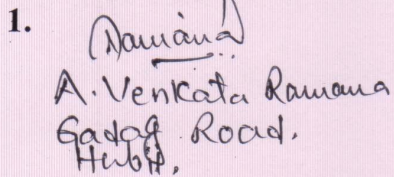 1.
Ramana
A. Venkata Ramana
Gadag Road.
Hubli.